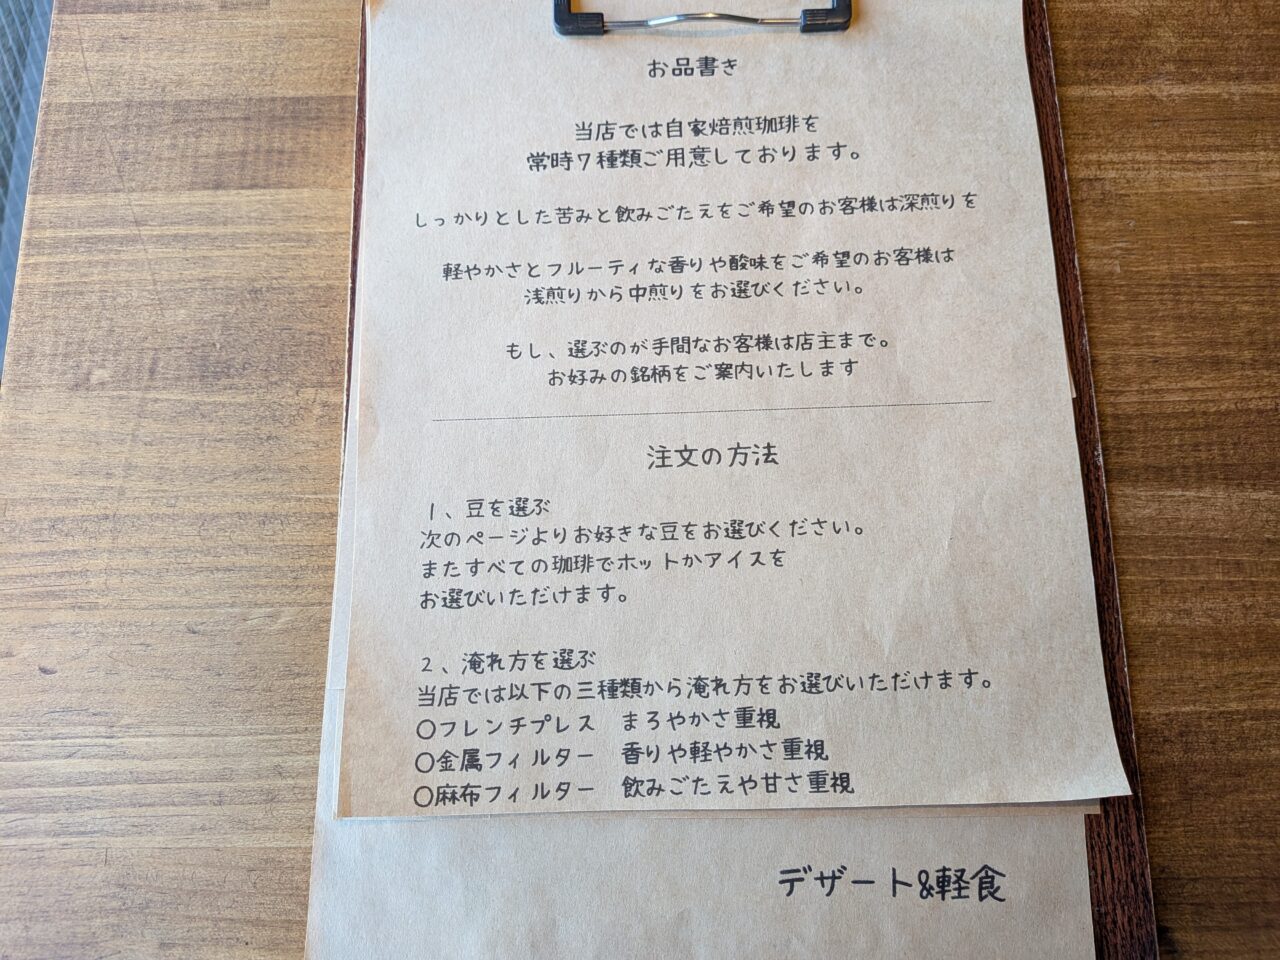 お品書き
当店では自家焙煎珈琲を
常時7種類ご用意しております。
しっかりとした苦みと飲みごたえをご希望のお客様は深煎りを
軽やかさとフルーティな香りや酸味をご希望のお客様は
浅煎りから中煎りをお選びください。
もし、選ぶのが手間なお客様は店主まで。
お好みの銘柄をご案内いたします
注文の方法
1、豆を選ぶ
次のページよりお好きな豆をお選びください。
またすべての珈琲でホットかアイスを
お選びいただけます。
2、淹れ方を選ぶ
当店では以下の三種類から淹れ方をお選びいただけます。
○フレンチプレス　まろやかさ重視
○金属フィルター　香りや軽やかさ重視
○麻布フィルター　飲みごたえや甘さ重視
デザート&軽食